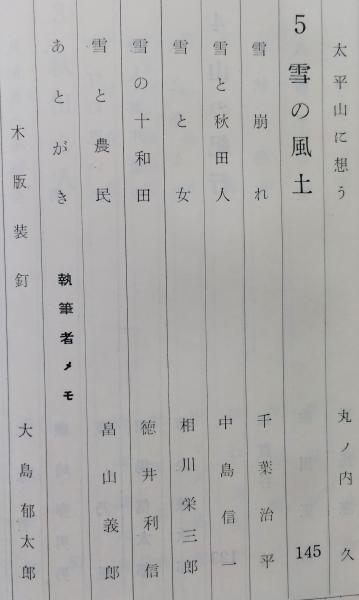 太平山に想う 丸ノ内 久
5 雪の風土 145
雪崩れ 千葉治平
雪と秋田人 中島信一
雪と女 相川栄三郎
雪の十和田 徳井利信
雪と農民 畠山義郎
あとがき 執筆者メモ
木版装釘 大島郁太郎